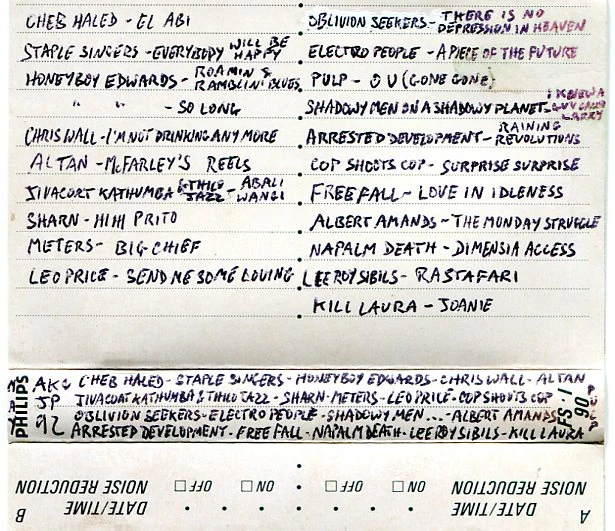 CHEB HALED - EL ABI
STAPLE SINGERS - EVERYBODY WILL BE HAPPY
HONEYBOY EDWARDS - ROAMIN & RAMBLIN' BLUES
" " - SO LONG
CHRIS WALL - I'M NOT DRINKING ANY MORE
ALTAN - McFARLEY'S REELS
JIVACORT KATHUMBA & THILO JAZZ - ABALI WANGI
SHARN - HIHI PRITO
METERS - BIG CHIEF
LEO PRICE - SEND ME SOME LOVING
OBLIVION SEEKERS - THERE IS NO DEPRESSION IN HEAVEN
ELECTRO PEOPLE - A PIECE OF THE FUTURE
PULP - O U (GONE GONE)
SHADOWY MEN ON A SHADOWY PLANET - I KNEW A GUY CALLED LARRY
ARRESTED DEVELOPMENT - RAINING REVOLUTIONS
COP SHOOTS COP - SURPRISE SURPRISE
FREEFALL - LOVE IN IDLENESS
ALBERT AMANDS - THE MONDAY STRUGGLE
NAPALM DEATH - DIMENSIA ACCESS
LEEROY SIBILS - RASTAFARI
KILL LAURA - JOANIE
PHILIPS
AKC CHEB HALED - STAPLE SINGERS - HONEYBOY EDWARDS - CHRIS WALL - ALTAN
JP JIVACORT KATHUMBA & THILO JAZZ - SHARN - METERS - LEO PRICE - COP SHOOTS COP
92 OBLIVION SEEKERS - ELECTRO PEOPLE - SHADOWY MEN... - ALBERT AMANDS
ARRESTED DEVELOPMENT - FREE FALL - NAPALM DEATH - LEEROY SIBILS - KILL LAURA
PULP
FS-I 90
A
DATE/TIME
NOISE REDUCTION
ON OFF
B
DATE/TIME
NOISE REDUCTION
ON OFF